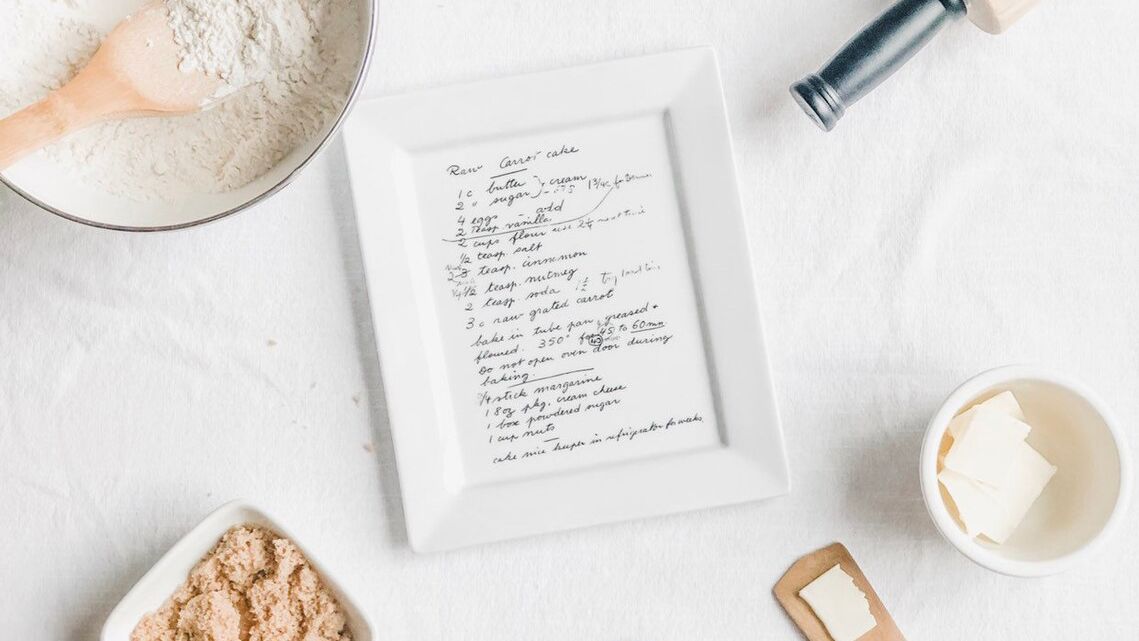 Raw Carrot cake
1 c butter } cream
2 " sugar 1 3/4 c for
4 eggs add
2 teasp vanilla.
2 cups flour use 2 1/4 next time
1/2 teasp. salt
2 3 teasp. cinnemon
1/4 1/2 teasp. nutmeg
2 teasp. soda 1 1/2 Try
3 c raw grated carrot
bake in tube pan, greased +
floured. 350° for 45 to 60 mn
Do not open oven door during
baking.
3/4 stick margarine
1 8oz pkg. cream cheese
1 box powdered sugar
1 cup nuts
cake nice keeper in refrigerator for weeks.